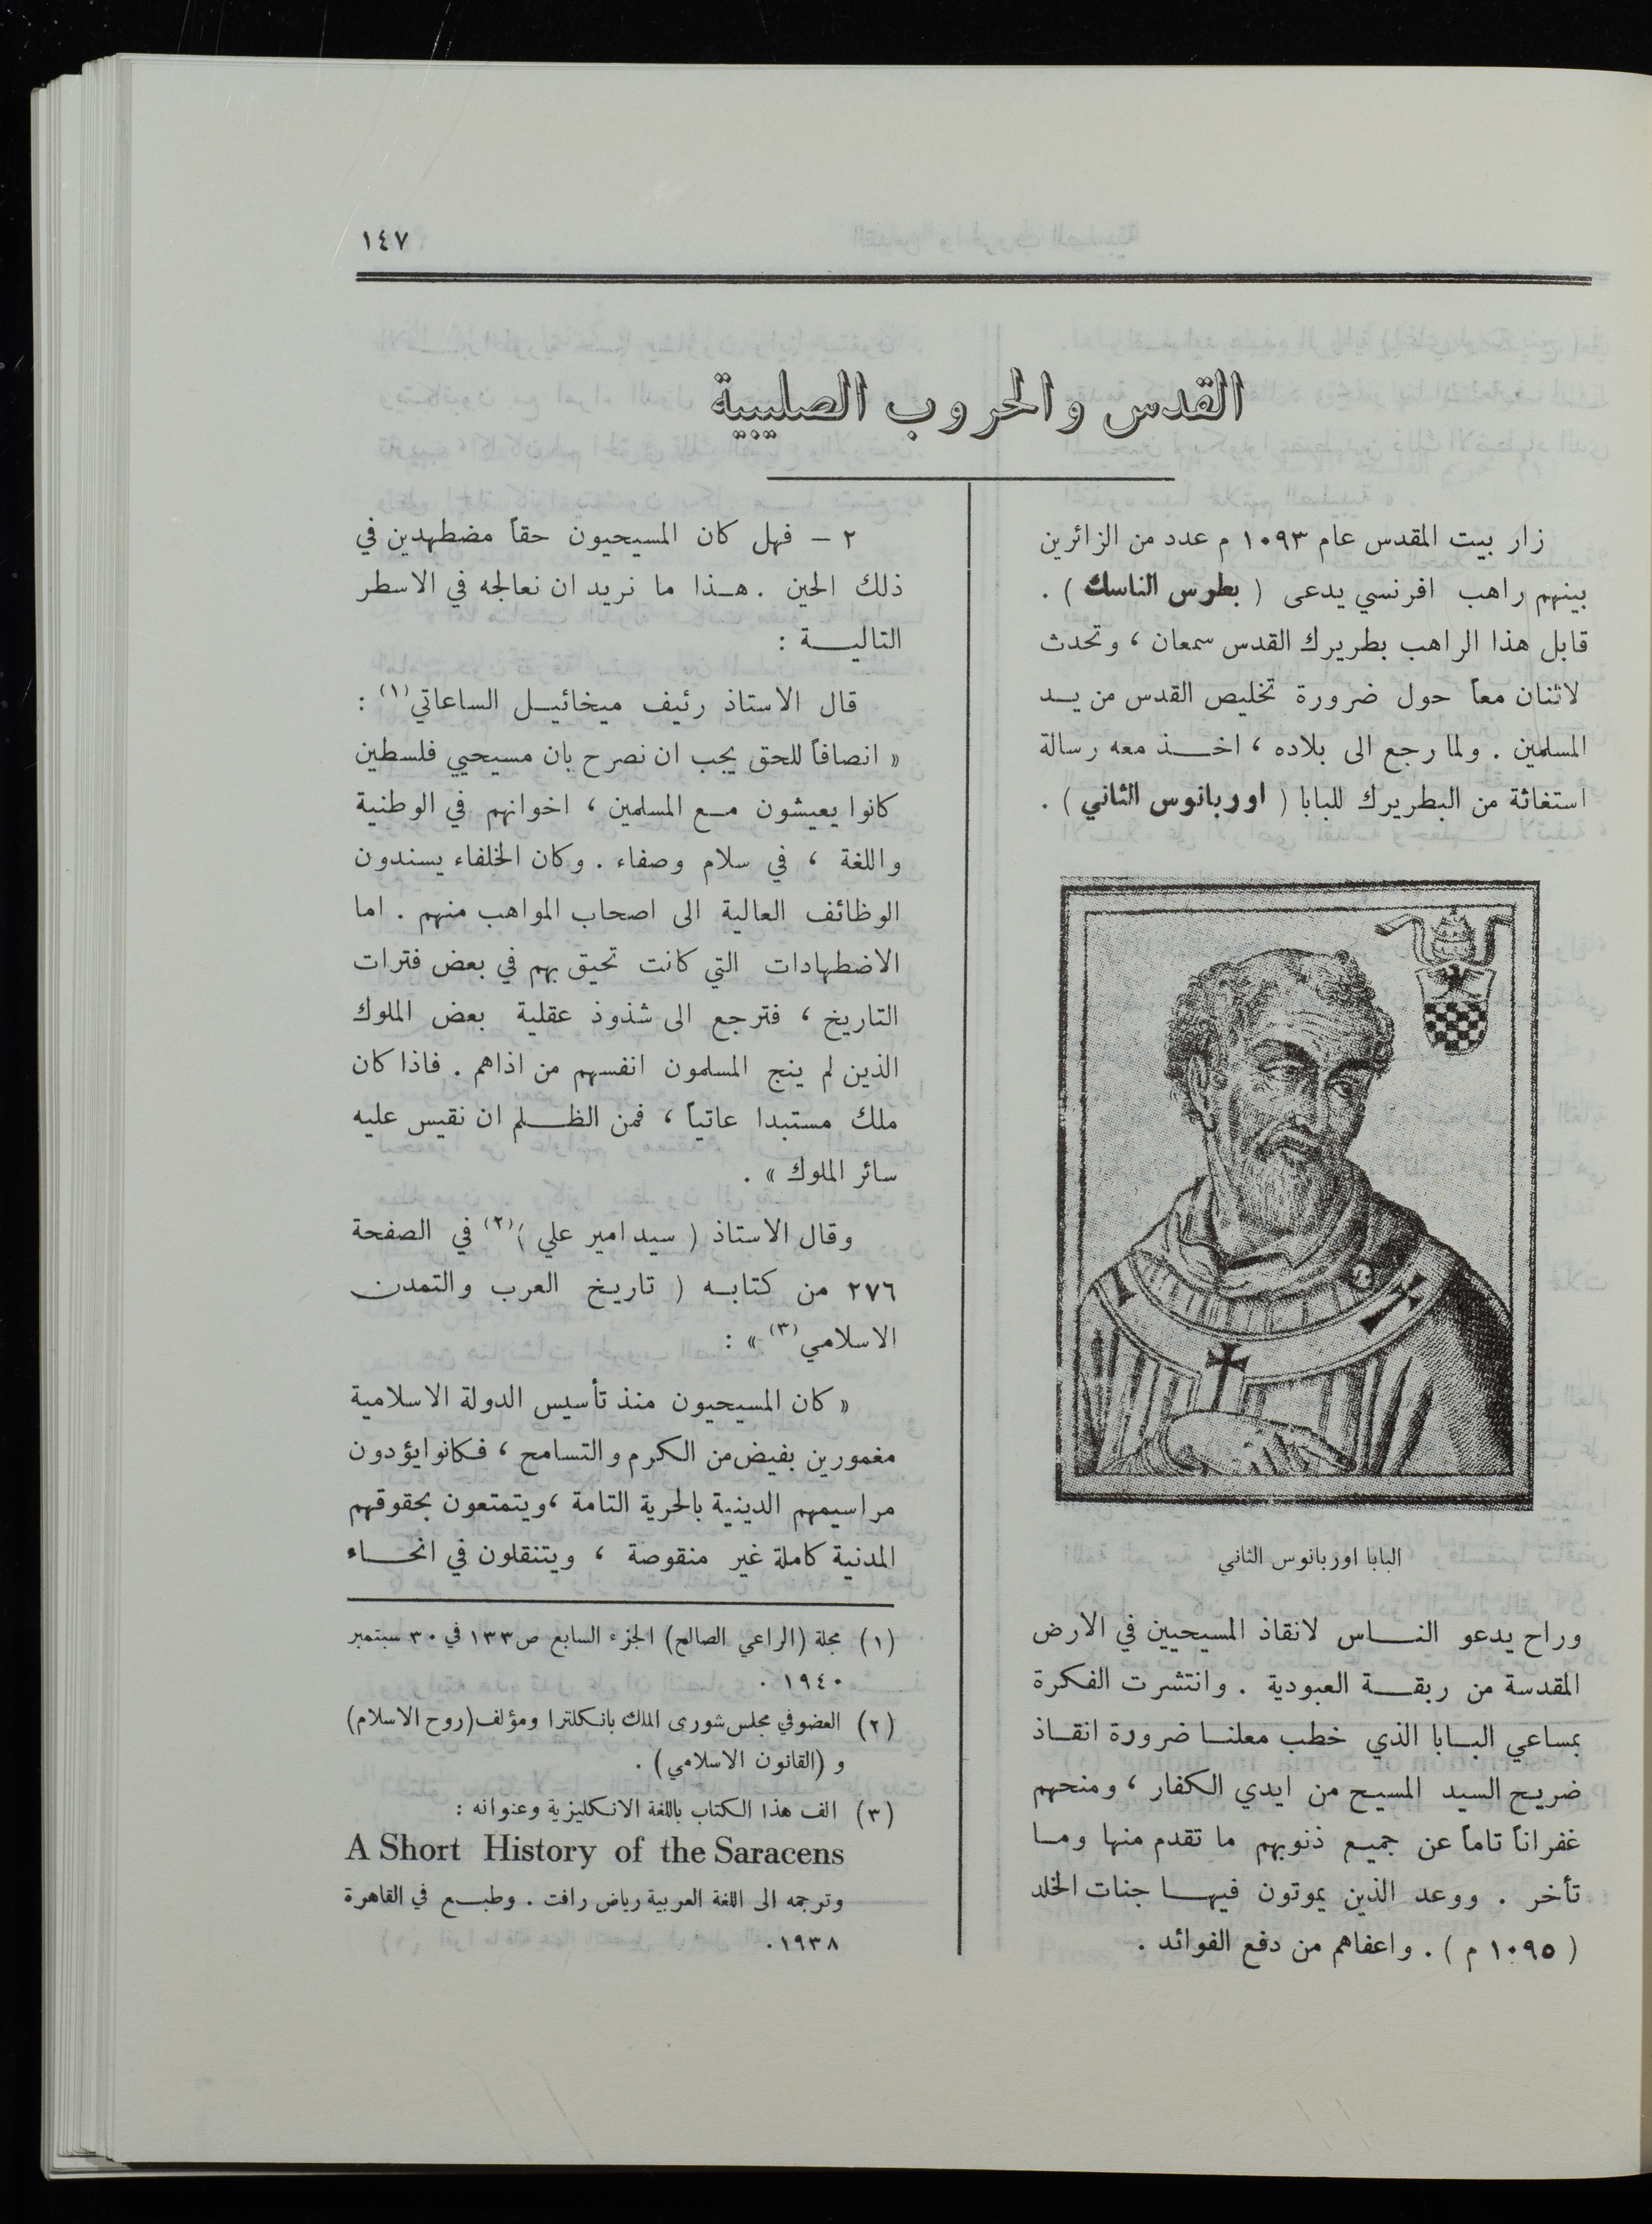 ١٤٧
القدس والحروب الصليبية
زار بيت المقدس عام ١٠٩٣ م عدد من الزائرين
بينهم راهب افرنسي يدعى ( بطرس الناسك ) .
قابل هذا الراهب بطريرك القدس سمعان ، وتحدث
لاثنان معاً حول ضرورة تخليص القدس من يــد
المسلمين . ولما رجع الى بلاده ، اخــذ معه رسالة
استغاثة من البطريرك للبابا ( اوربانوس الثاني ) .
البابا اوربانوس الثاني
وراح يدعو النــاس لانقاذ المسيحيين في الارض
المقدسة من ربقــة العبودية . وانتشرت الفكرة
بمساعي البــابا الذي خطب معلنــا ضرورة انقــاذ
ضريح السيد المسيح من ايدي الكفار ، ومنحهم
غفراناً تاماً عن جميع ذنوبهم ما تقدم منها ومــا
تأخر . ووعد الذين يموتون فيهــا جنات الخلد
( ١٠٩٥ م ) . واعفاهم من دفع الفوائد .
٢ – فهل كان المسيحيون حقاً مضطهدين في
ذلك الحين . هــذا ما نريد ان نعالجه في الاسطر
التاليــة :
قال الاستاذ رئيف ميخائيــل الساعاتي (١) :
« انصافاً للحق يجب ان نصرح بان مسيحيي فلسطين
كانوا يعيشون مــع المسلمين ، اخوانهم في الوطنية
واللغة ، في سلام وصفاء . وكان الخلفاء يسندون
الوظائف العالية الى اصحاب المواهب منهم . اما
الاضطهادات التي كانت تحيق بهم في بعض فترات
التاريخ ، فترجع الى شذوذ عقلية بعض الملوك
الذين لم ينج المسلمون انفسهم من اذاهم . فاذا كان
ملك مستبدا عاتياً ، فمن الظــلم ان نقيس عليه
سائر الملوك » .
وقال الاستاذ ( سيد امير علي ) (٢) في الصفحة
٢٧٦ من كتابــه ( تاريــخ العرب والتمدن
الاسلامي (٣) » :
« كان المسيحيون منذ تأسيس الدولة الاسلامية
مغمورين بفيض من الكرم والتسامح ، فكانوا يؤدون
مراسيمهم الدينية بالحرية التامة ، ويتمتعون بحقوقهم
المدنية كاملة غير منقوصة ، ويتنقلون في انحــاء
(١) مجلة (الراعي الصالح) الجزء السابع ص ١٣٣ في ٣٠ سبتمبر
١٩٤٠ .
(٢) العضو في مجلس شورى الملك بانكلترا ومؤلف (روح الاسلام)
و (القانون الاسلامي) .
(٣) الف هذا الكتاب باللغة الانكليزية وعنوانه :
A Short History of the Saracens
وترجمه الى اللغة العربية رياض رافت . وطبــع في القاهرة
١٩٣٨.